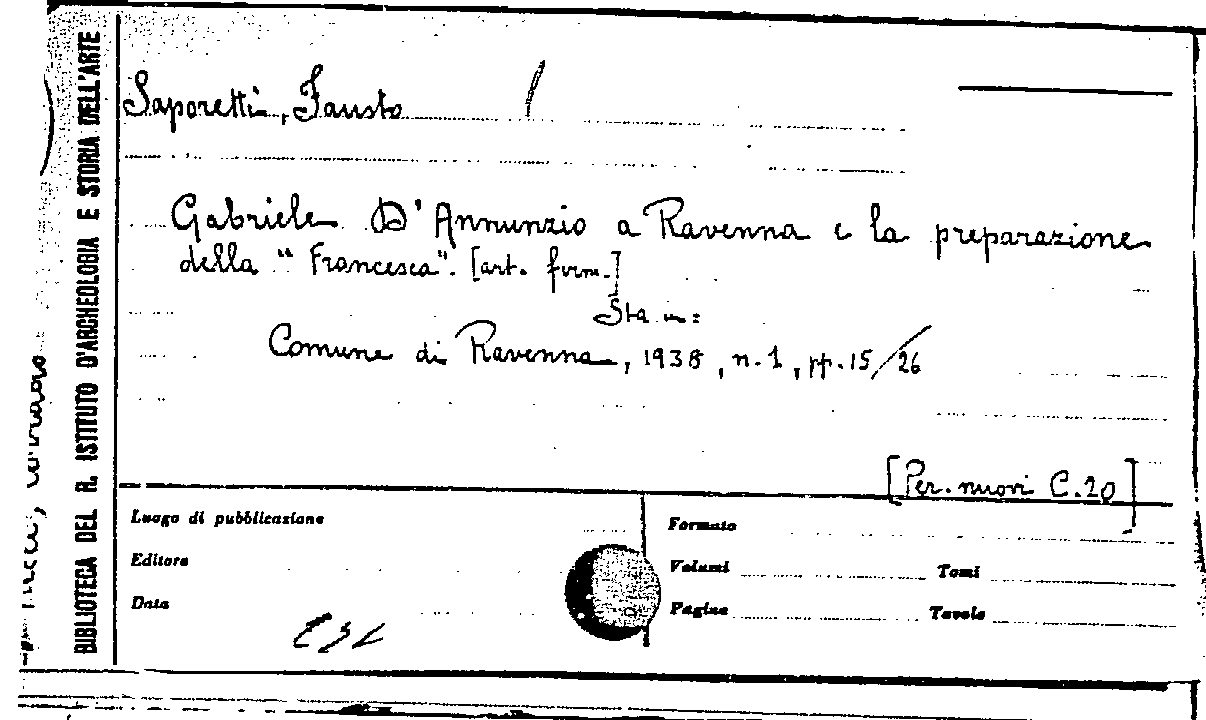 BIBLIOTECA DEL R. ISTITUTO D'ARCHEOLOGIA E STORIA DELL'ARTE
Saporetti, Fausto
Gabriele D'Annunzio a Ravenna e la preparazione
della "Francesca". [art. firm.]
Sta in:
Comune di Ravenna, 1938, n. 1, pp. 15/26
[Per. nuovi C.20]
Luogo di pubblicazione
Formato
Editore
Volumi
Tomi
Data
Pagine
Tavole